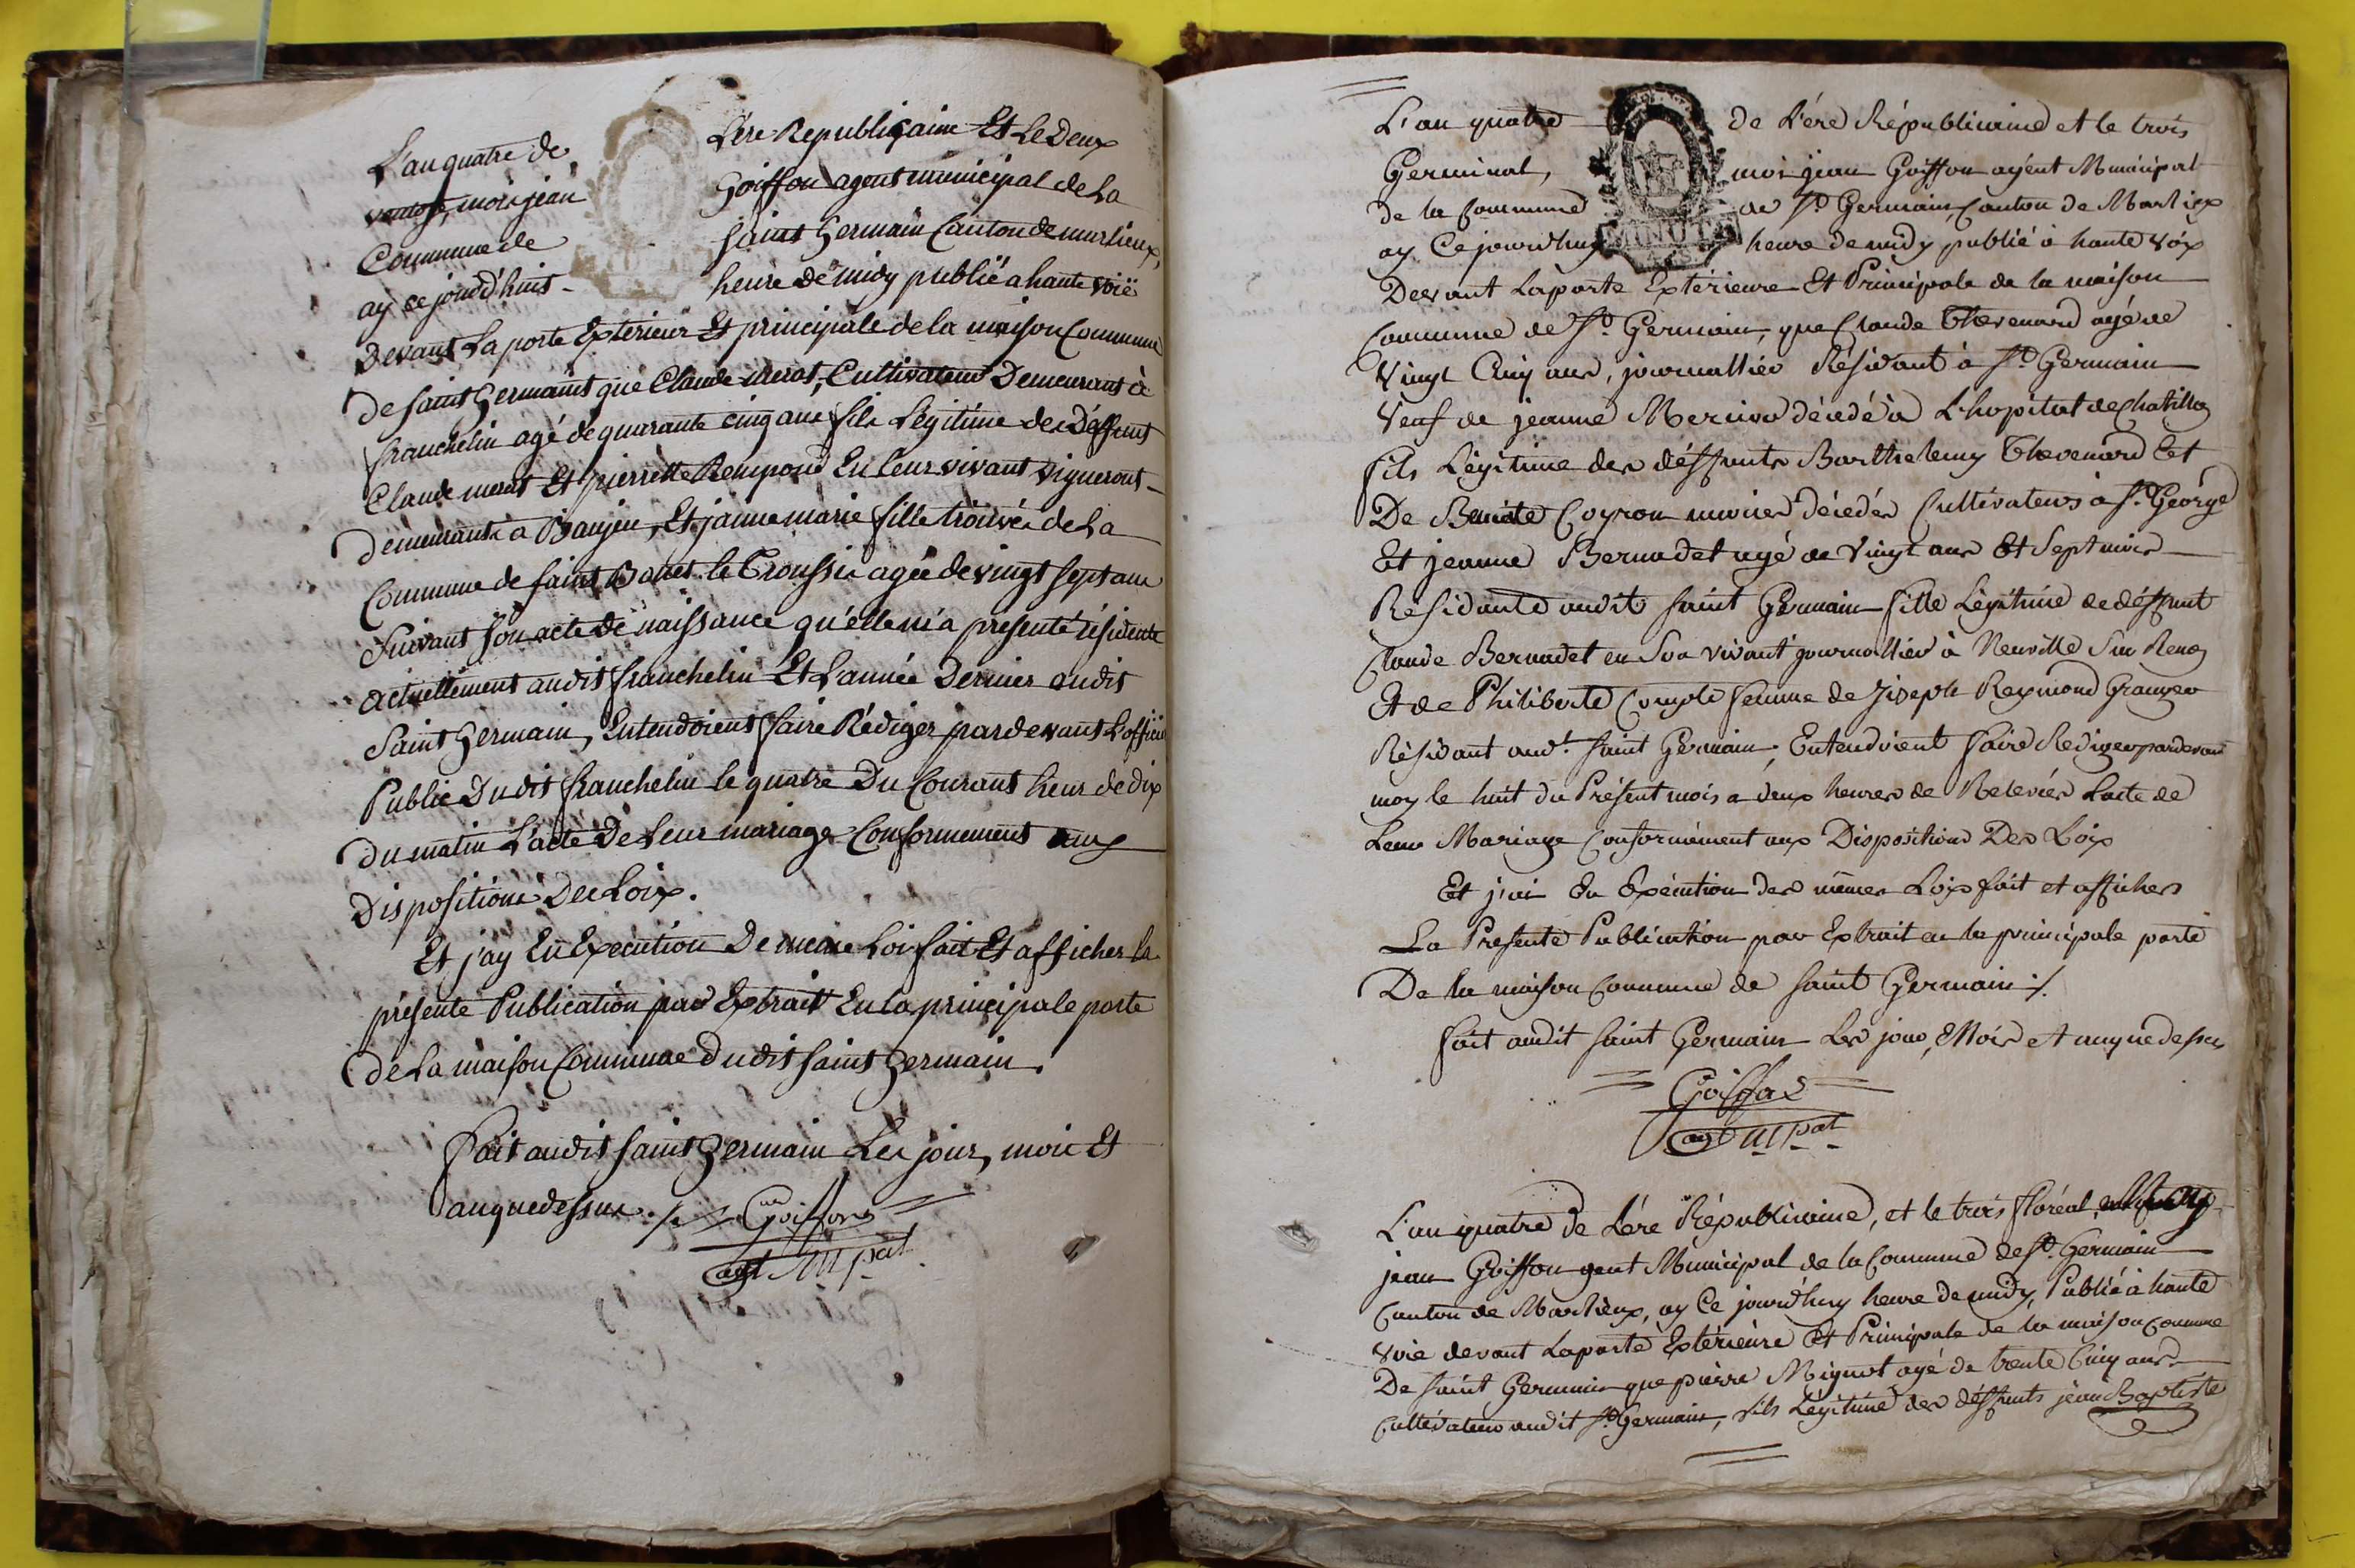 L'an quatre de L'ere Republiçaine Et Le Deux
ventose, moi jean Goiffon agent municipal de La
Commune de saint Germain Canton de marlieux,
ay ce jourd'huit heure de midy publié a haute voië
Devant La porte Exterieur Et principale de la maison Commune
De saint Germaint que Claude merat, Cultivateur Demeurant à
franchelin agé de quarante cinq ans fils Legitime des Déffunt
Claude merat Et pierrette Rempond En leur vivant vigneront
demeurants a Baujeu, Et janne marie fille trouvée de La
Commune de saint Bonet le Troussie agée de vingt sept ans
suivant son acte de naissance qu'elle m'a presenté résidente
actuellement audit franchelin Et L'année Dernier audit
Saint Germain, Entendoient faire Rédiger pardevant L'offiier
Public Dudit franchelin le quatre Du Courant heur de dix
du matin L'acte De Leur mariage Conformement aux
Dispositions Des Loix.
Et j'ay En Execution De meme Loi fait Et afficher la
présente Publication par Extrait En la principale porte
de La maison Commune dudit saint Germain.
fait audit saint Germain Les jour, moic Et
an que dessus ./.
Goiffon
agt Mpal
L'an quatre de L'ére Républicaine et le trois
Germinal, moi jean Goiffon agent Municipal
de la Commune de St. Germain Canton de Marliex
MINUTE
ay Ce jourdhuy heure de midy publié à haute vóix
Devant La porte Extérieure Et Principale de la maison
Commune de St. Germain, que Claude Thevenard agé de
Vingt Cinq ans, journallier Résidant à St. Germain
Veuf de jeanne Mercier décédé à L'hopital de Chatillon
fils Légitime des déffunts Barthelemy Thevenard Et
De Benoite Coyron décédés Cultivateurs à St. Géorge
Et jeanne Bernadet agé de Vingt ans Et Sept mois
Résidante audit saint Germain fille Légitime de déffunt
Claude Bernadet en Son vivant journallier à Neuville Sur Renon
Et de Philiberte Comple femme de Joseph Reymond Granger
Résidant audt. saint Germain, Entendoient faire Rediger pardevant
moy le huit du Présent mois a deux heures de Relevées L'acte de
Leur Mariage Conformément aux Dispositions Des Loix
Et j'ai En Exécution des mêmes Loix fait et afficher
La Presente Publication par Extrait en la principale porte
De la maison Commune de saint Germain ./.
fait audit saint Germain Les jour, Mois et an que dessus
Goiffon
agt Mpal
L'an quatre de L'ére Républicaine, et le trois floréal,
jean Goiffon agent Municipal de la Commune de St. Germain
Canton de Marlieux, ay Ce jourd'huy heure de midy, Publié à haute
voie devant La porte Extérieure Et Principale de la maison Commune
De saint Germain que pierre Mignot agé de trente Cinq ans
Cultivateur audit St. Germain, fils Légitime des déffunts jean Baptiste